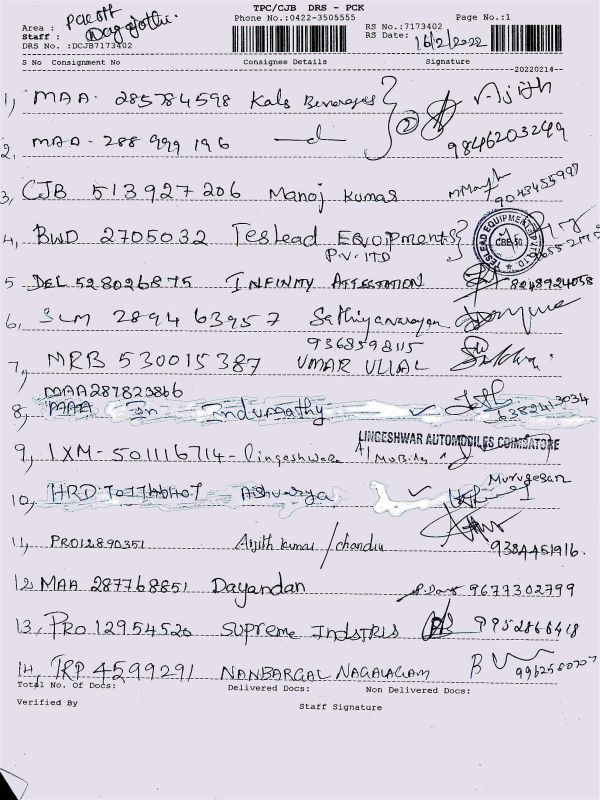 TPC/CJB DRS - PCK
Phone No.:0422-3505555 Page No.:1
Area :
Staff :
DRS No. :DCJB7173402
RS No.:7173402
RS Date: 16/2/2022
S No Consignment No Consignee Details Signature
20220214
1, MAA- 285784598 Kals Beverages 2 Ajith
2, MAA - 288 999 196 9846203249
3, CJB 513927206 Manoj Kumar
4, BWD 2705032 Teslead EQOipments
P.V. LTD
TESLEAD EQUIPMENTS PVT LTD CBE-50
5 DEL 528026875 INFINITY ATTESTATION 8248924058
6, SLM 289463957 Sathiyanarayan
9368598115
7, MRB 530015387 UMAR ULLAL
MAA287823866
8, MAA Indumathy
LINGESHWAR AUTOMOBILES COIMBATORE
9, IXM-501116714-Lingeshwara
Murugesan
10, Aishvarya
11, PRO12890351 Anjith kumar / chandru 9384451916.
12 MAA 287768851 Dayandan 9677302799
13, PRO 12954520 SUPREME INDSTRIS 9952866418
14, TRP 4599291 NANBARGAL NAGALAGAM
Total No. Of Docs: Delivered Docs: Non Delivered Docs:
Verified By Staff Signature